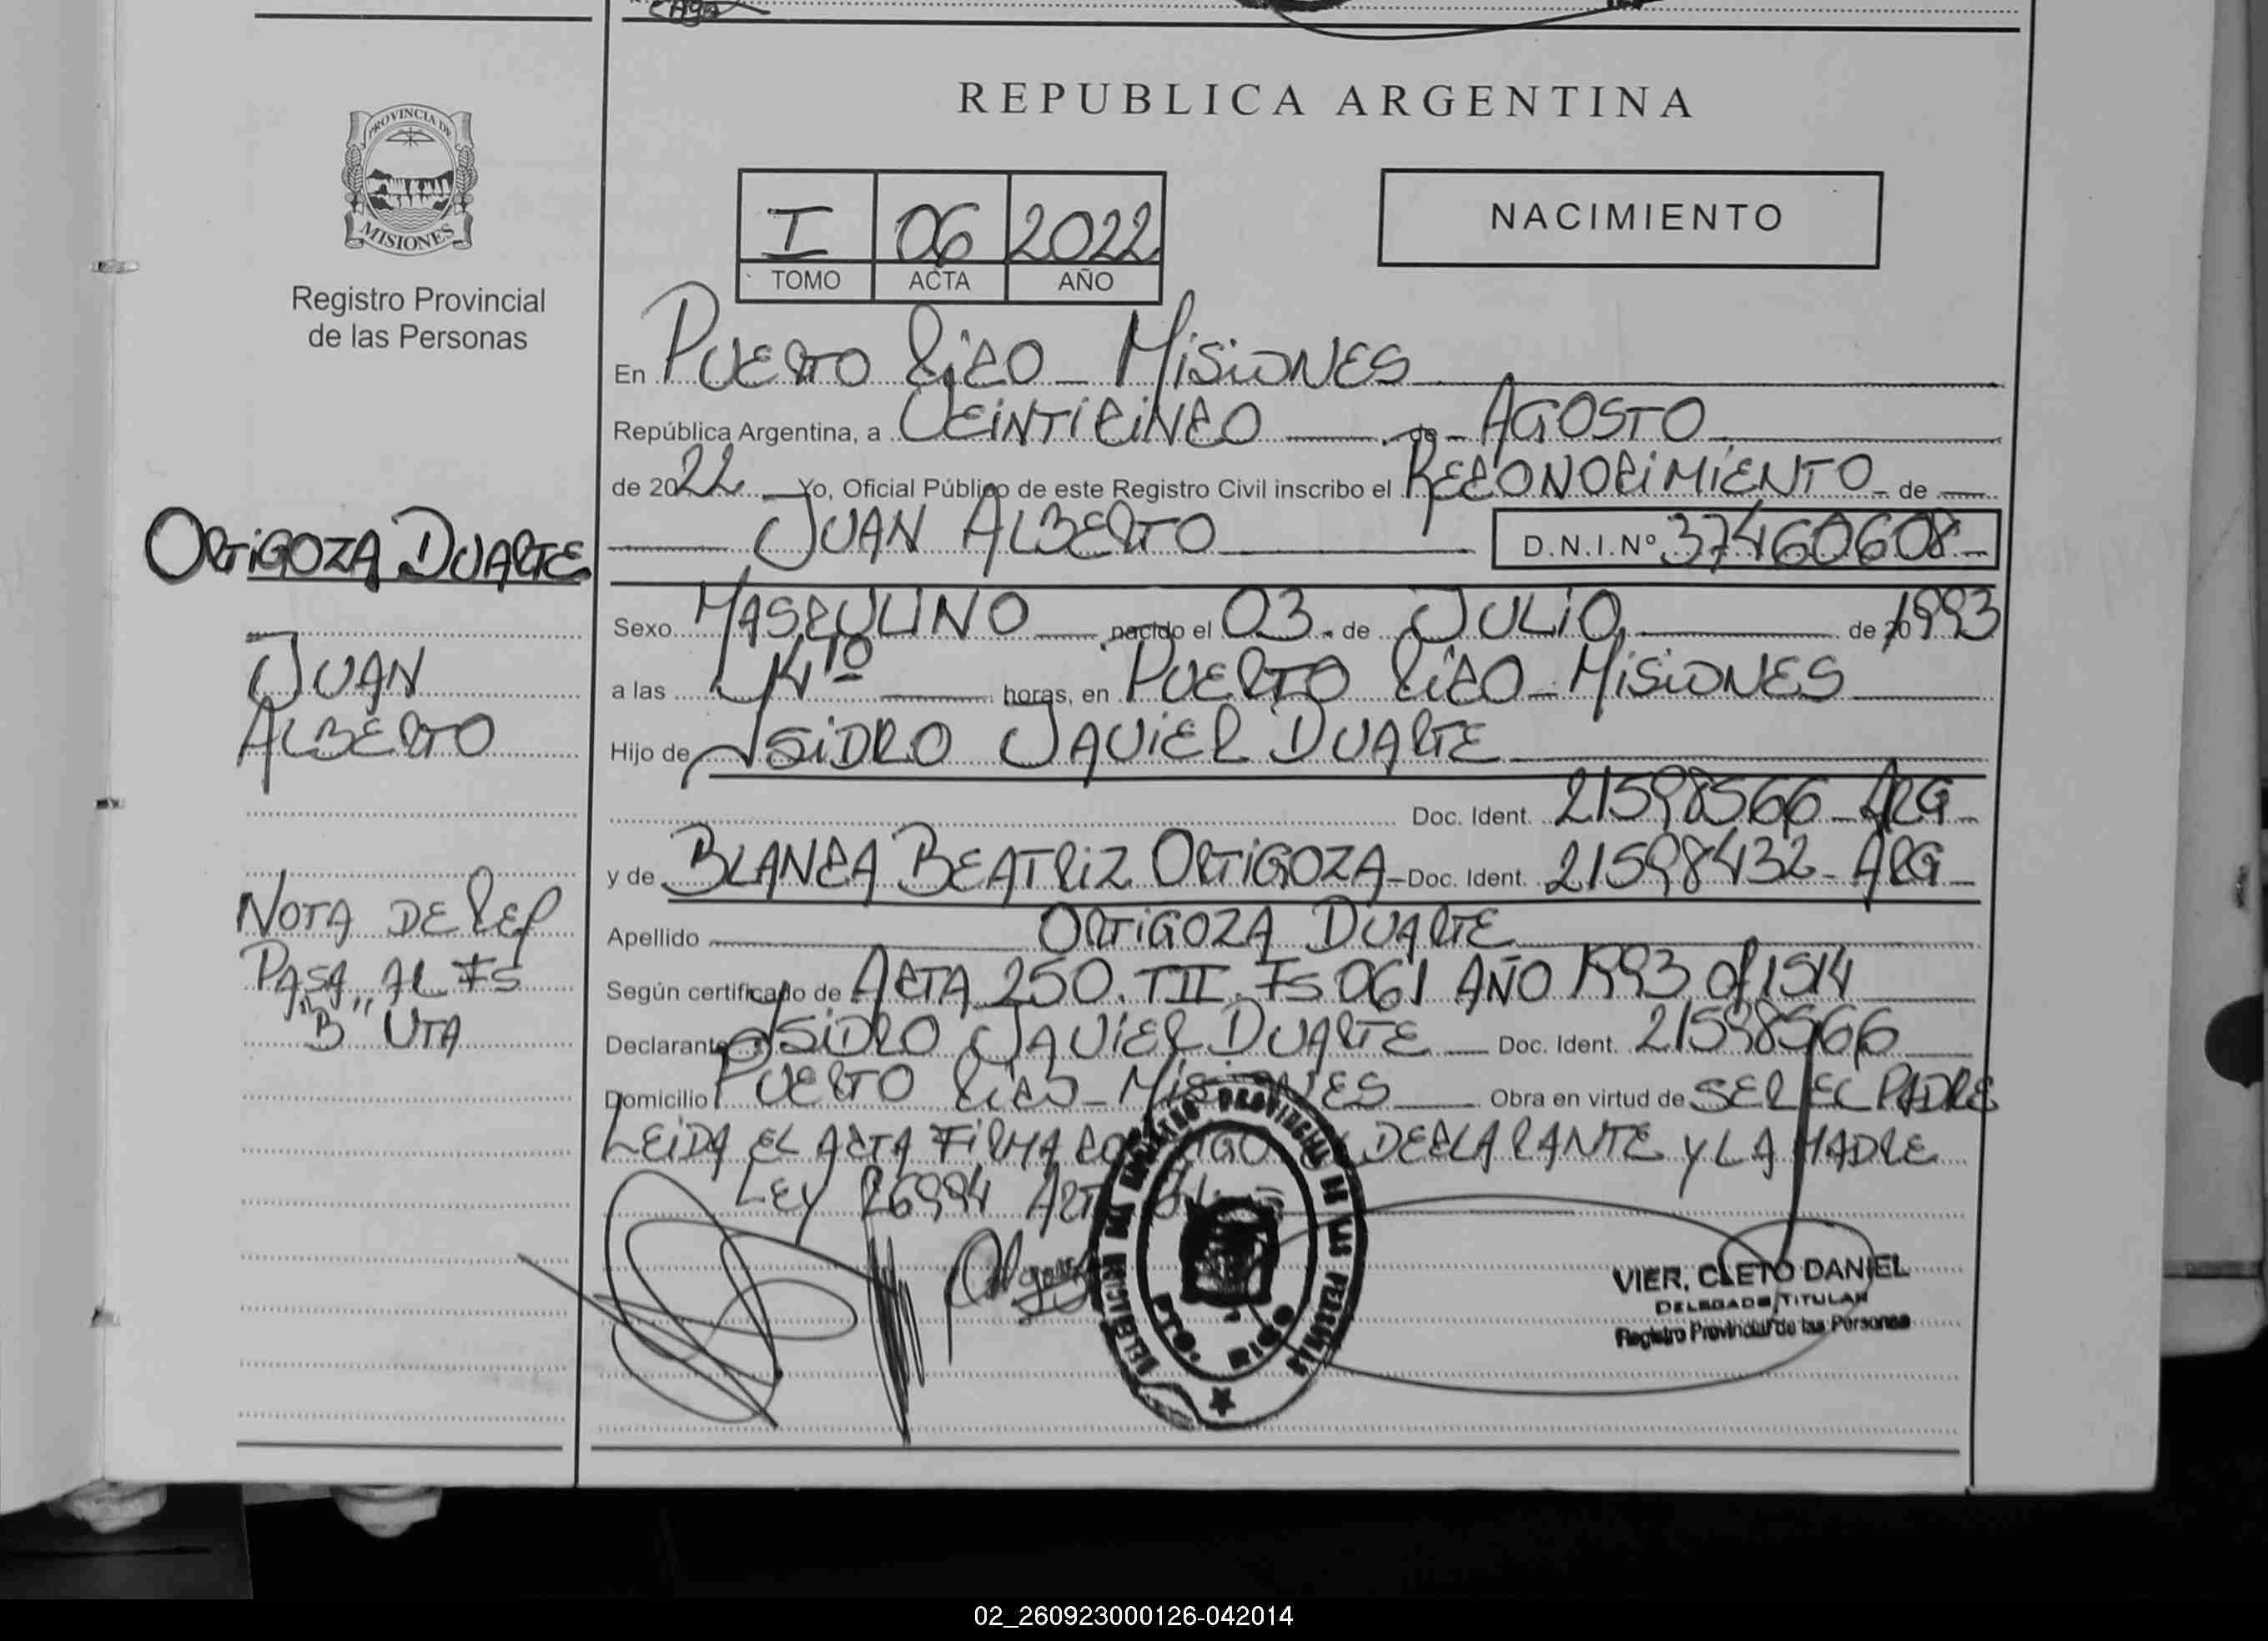 REPUBLICA ARGENTINA
PROVINCIA DE
MISIONES
Registro Provincial
de las Personas
I 06 2022
TOMO ACTA AÑO
NACIMIENTO
En PUERTO RICO - MISIONES
República Argentina, a VEINTICINCO de AGOSTO
de 2022 Yo, Oficial Público de este Registro Civil inscribo el RECONOCIMIENTO de
ORTIGOZA DUARTE
JUAN ALBERTO D.N.I.Nº 37460608
Sexo MASCULINO nacido el 03 de JULIO de 1993
JUAN
ALBERTO
a las horas, en PUERTO RICO - MISIONES
Hijo de ISIDRO JAVIER DUARTE
Doc. Ident. 21598566 - ARG
y de BLANCA BEATRIZ ORTIGOZA - Doc. Ident. 21598432 - ARG
NOTA DE REF
PASA AL FS
"B" UTA
Apellido ORTIGOZA DUARTE
Según certificado de ACTA 250. TII. FS 061 AÑO 1993 of 1514
Declarante ISIDRO JAVIER DUARTE Doc. Ident. 21598566
Domicilio PUERTO RICO - MISIONES Obra en virtud de SER EL PADRE
LEIDA EL ACTA FIRMA DECLARANTE Y LA MADRE
LEY 26994 ART
DELEGACION DEL REGISTRO PROVINCIAL DE LAS PERSONAS
PTO. RICO
VIER, CLETO DANIEL
DELEGADO TITULAR
Registro Provincial de las Personas
02_260923000126-042014